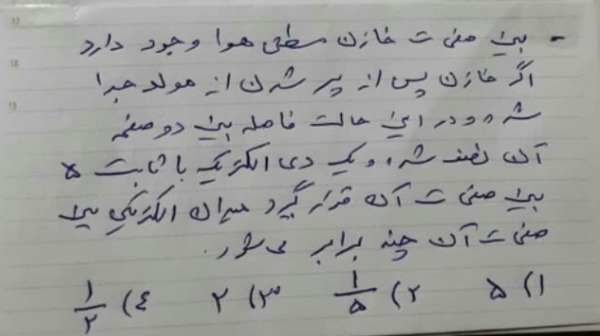 - بین صفحات خازن مسطحی هوا وجود دارد
اگر خازن پس از پر شدن از مولد جدا
شده و در این حالت فاصله بین دو صفحه
آن نصف شده و یک دی الکتریک با ثابت ۵
بین صفحات آن قرار گیرد میدان الکتریکی بین
صفحات آن چند برابر می‌شود.
۱) ۵ ۲) ۱/۵ ۳) ۲ ۴) ۱/۲